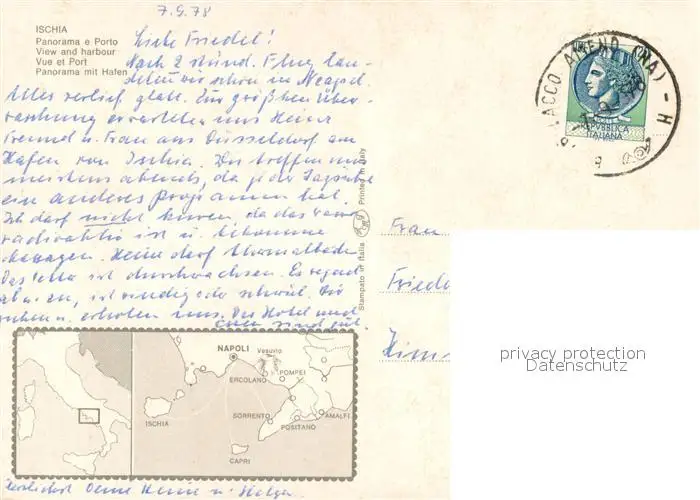 7.9.78
ISCHIA
Panorama e Porto
View and harbour
Vue et Port
Panorama mit Hafen
Liebe Friedel!
Nach 2 stünd. Flug lan-
deten wir schon in Neapel.
Alles verlief glatt. Zur größten Über-
raschung erwarteten uns Heinz
Freund u. Frau aus Düsseldorf am
Hafen von Ischia. Wir treffen uns
meistens abends, da jeder tagsüber
ein anderes Programm hat.
Ich darf nicht kuren, da das
radioaktiv ist u. bekomme
Massagen. Heinz darf Thermalbaden
Das Wetter ist durchwachsen. Es regnet
ab u. zu, ist windig oder schwül. Wir
ruhen u. erholen uns. Das Hotel und
Essen sind gut.
Herzlichst Deine u. Helga
LACCO AMENO (NA) - H
REPVBBLICA
ITALIANA
Printed in Italy
Stampato in Italia
Frau
Friede
privacy protection
Datenschutz
NAPOLI
Vesuvio
ERCOLANO
POMPEI
ISCHIA
SORRENTO
POSITANO
AMALFI
CAPRI